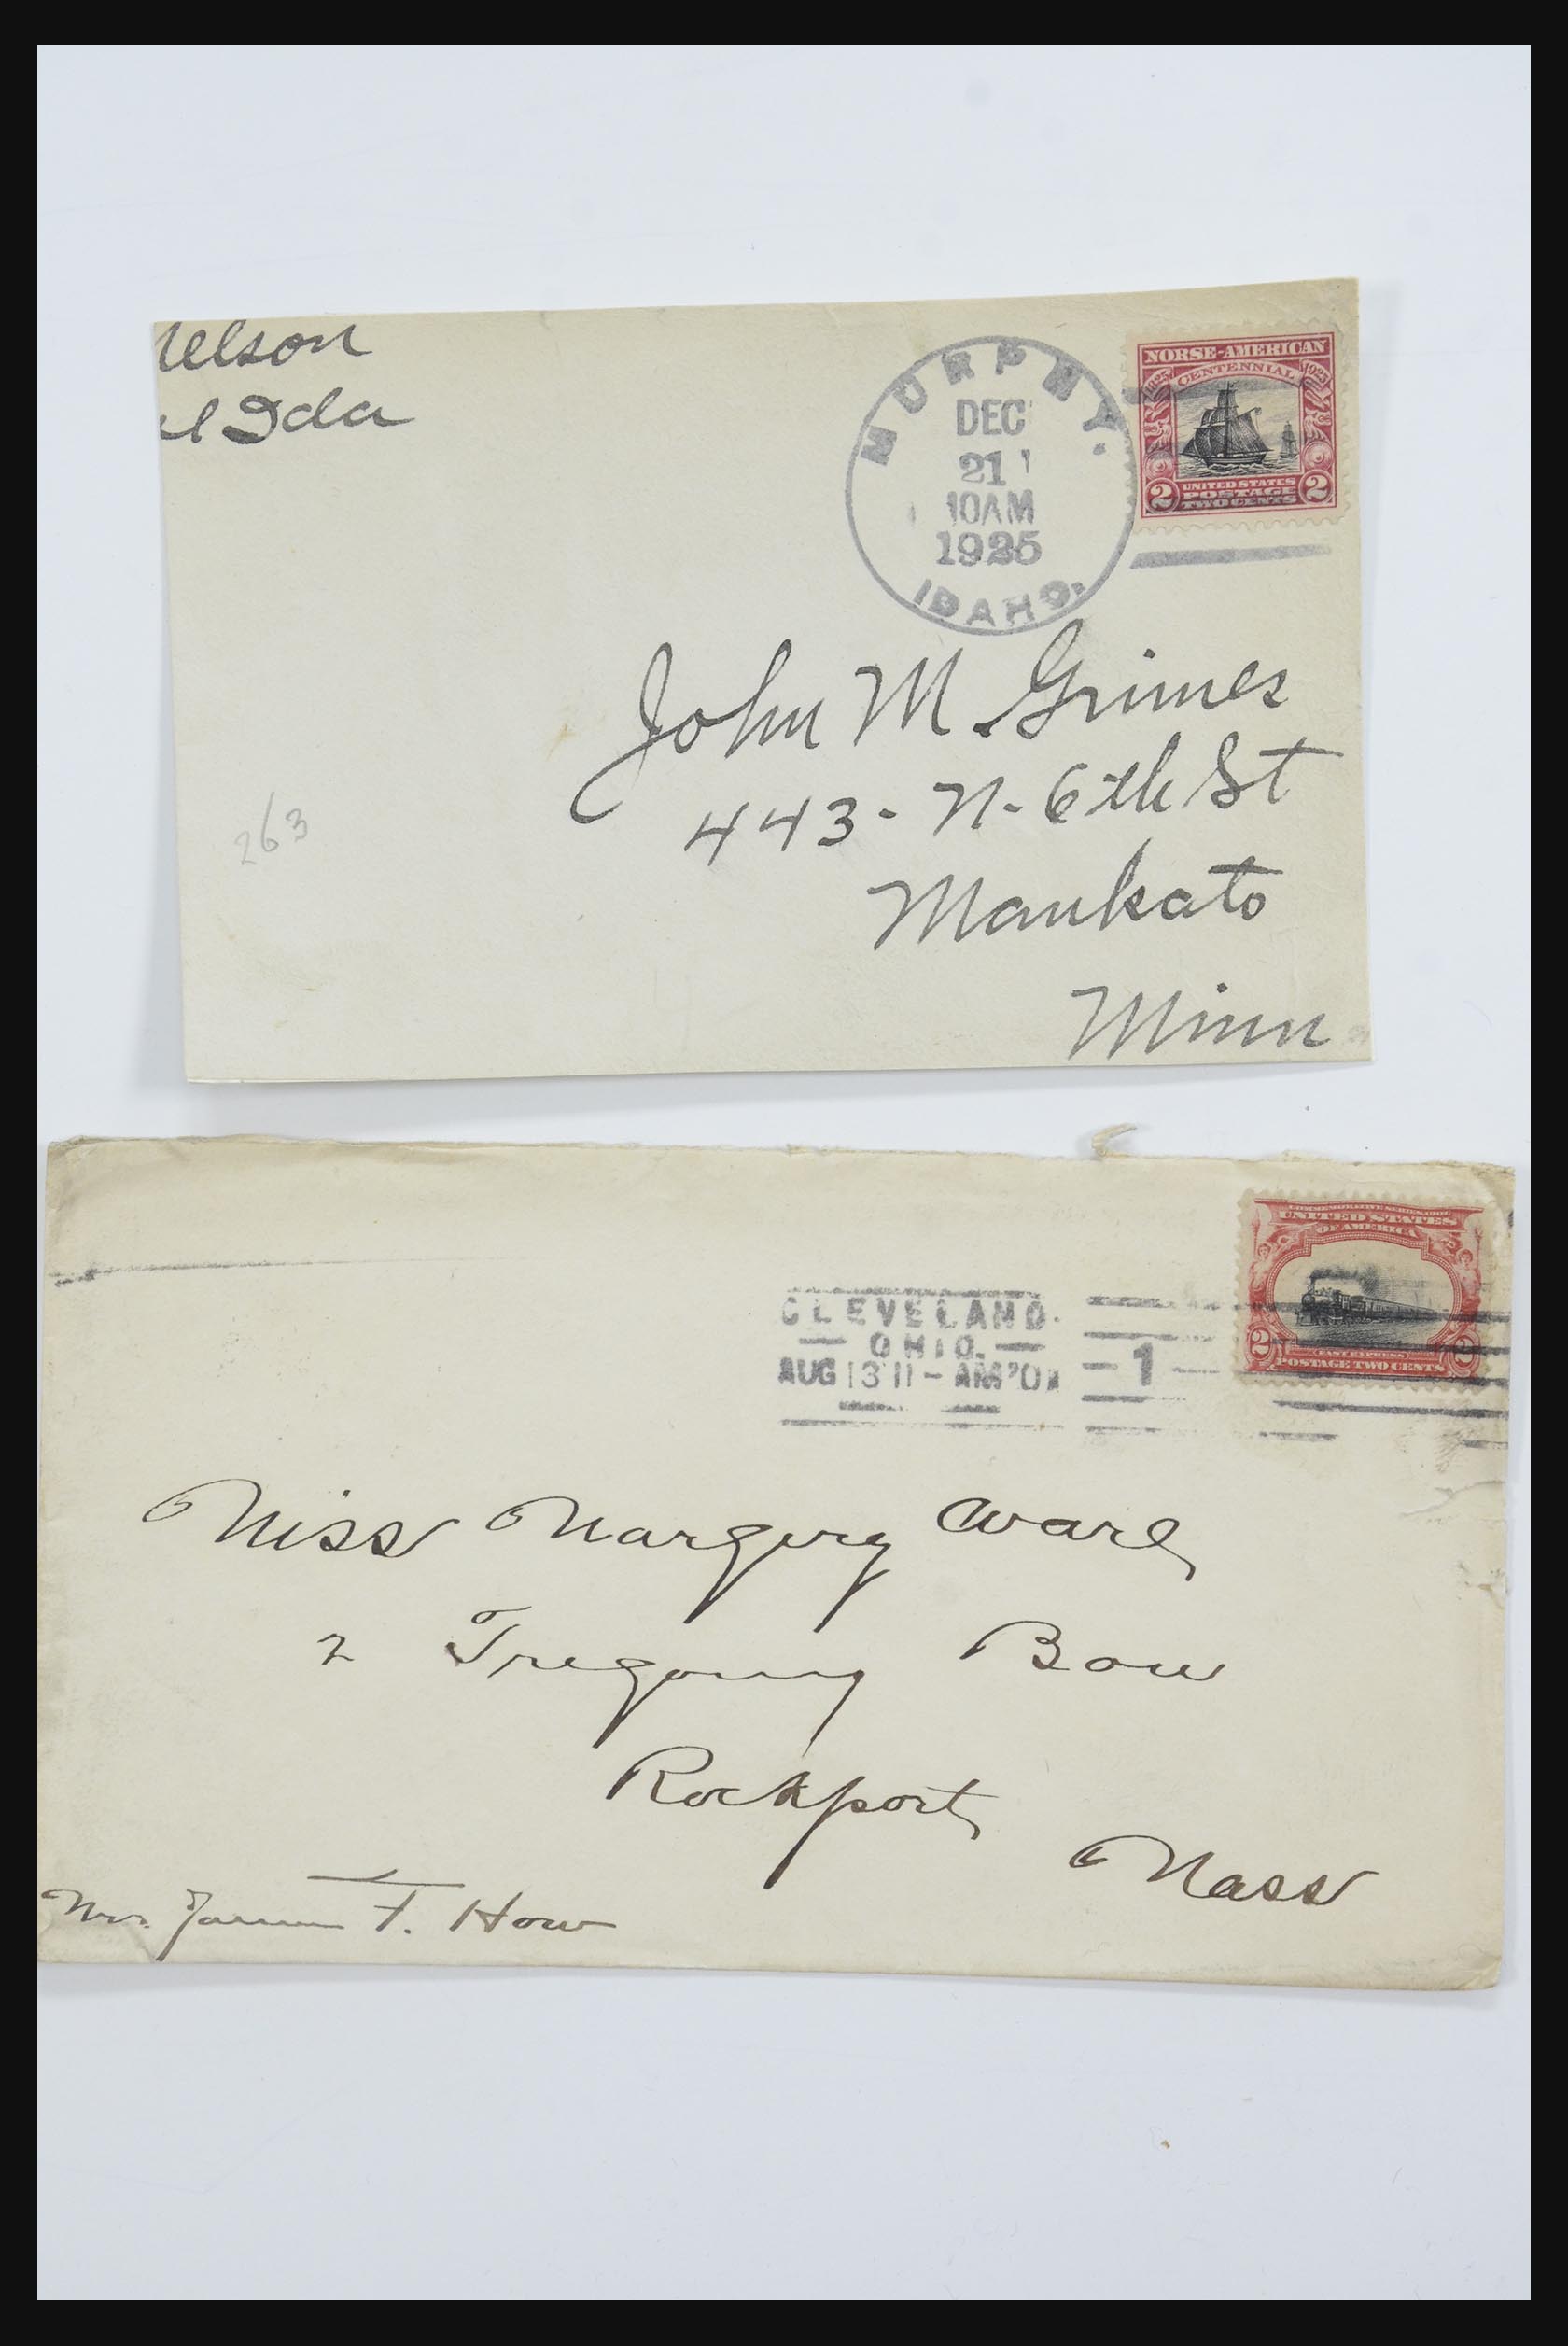 elson
Ida
MURPHY.
DEC
21
10AM
1925
IDAHO.
NORSE-AMERICAN
CENTENNIAL
1825 1925
2 UNITED STATES 2
POSTAGE
TWO CENTS
John M. Grimes
443 - N - 6th St
Mankato
Minn
263
COMMEMORATIVE SERIES 1901
UNITED STATES
OF AMERICA
2 FAST EXPRESS 2
POSTAGE TWO CENTS
CLEVELAND.
OHIO.
AUG 13 11 - AM '01
1
Miss Margery Ware
2 Bow
Rockport
Mass
Mrs. F. How